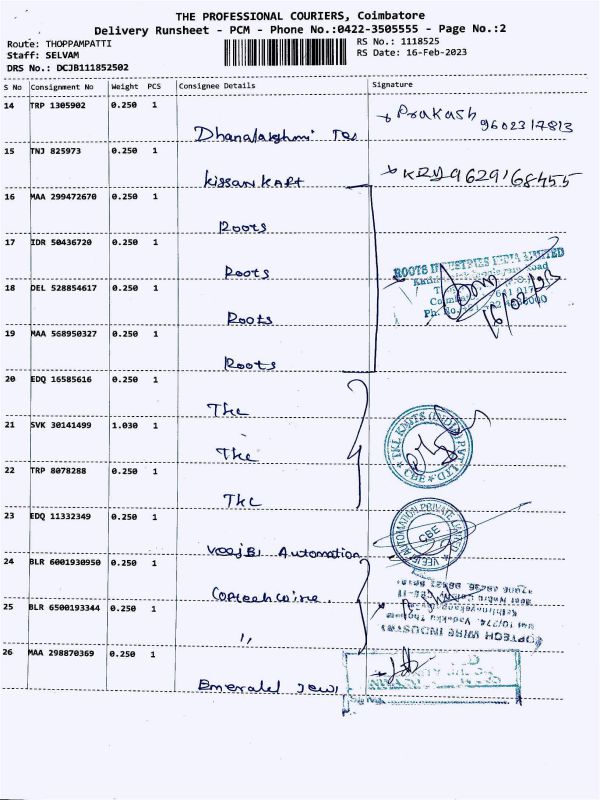 THE PROFESSIONAL COURIERS, Coimbatore
Delivery Runsheet - PCM - Phone No.:0422-3505555 - Page No.:2
Route: THOPPAMPATTI
RS No.: 1118525
Staff: SELVAM
RS Date: 16-Feb-2023
DRS No.: DCJB111852502
S No Consignment No Weight PCS Consignee Details Signature
14 TRP 1305902 0.250 1
Prakash
9602317813
Dhanalakshmi Tex
15 TNJ 825973 0.250 1
kissan kart
9629168455
16 MAA 299472670 0.250 1
Roots
17 IDR 50436720 0.250 1
ROOTS INDUSTRIES INDIA LIMITED
Roots
18 DEL 528854617 0.250 1
Roots
19 MAA 568950327 0.250 1
Roots
20 EDQ 16585616 0.250 1
21 SVK 30141499 1.030 1
TKL KNOTS (INDIA) PVT. LTD.
CBE
22 TRP 8078288 0.250 1
23 EDQ 11332349 0.250 1
VEEJBI AUTOMATION PRIVATE LIMITED
CBE
Veejbi Automation
24 BLR 6001930950 0.250 1
25 BLR 6500193344 0.250 1
COPTECH WIRE INDUSTRY
"
26 MAA 298870369 0.250 1
Emerald Jewl